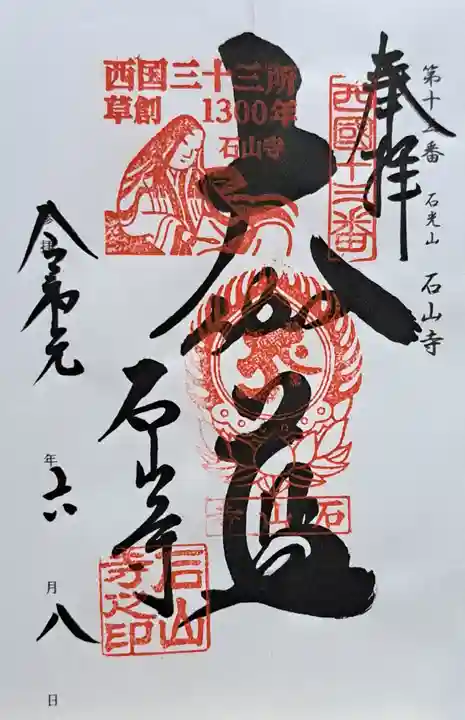 奉拝
第十三番 石光山 石山寺
西國十三番
西国三十三所
草創 1300年
石山寺
大伽藍
石山寺
石山寺
石山寺之印
令和元年六月八日